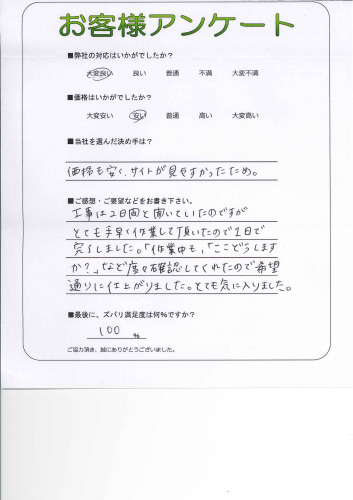 お客様アンケート
■弊社の対応はいかがでしたか？
大変良い 良い 普通 不満 大変不満
■価格はいかがでしたか？
大変安い 安い 普通 高い 大変高い
■当社を選んだ決め手は？
価格も安く、サイトが見やすかったため。
■ご感想・ご要望などをお書き下さい。
工事は2日間と聞いていたのですが
とても手早く作業して頂いたので1日で
完了しました。「作業中も、「ここどうします
か？」など度々確認してくれたので希望
通りに仕上がりました。とても気に入りました。
■最後に、ズバリ満足度は何%ですか？
100 %
ご協力頂き、誠にありがとうございました。